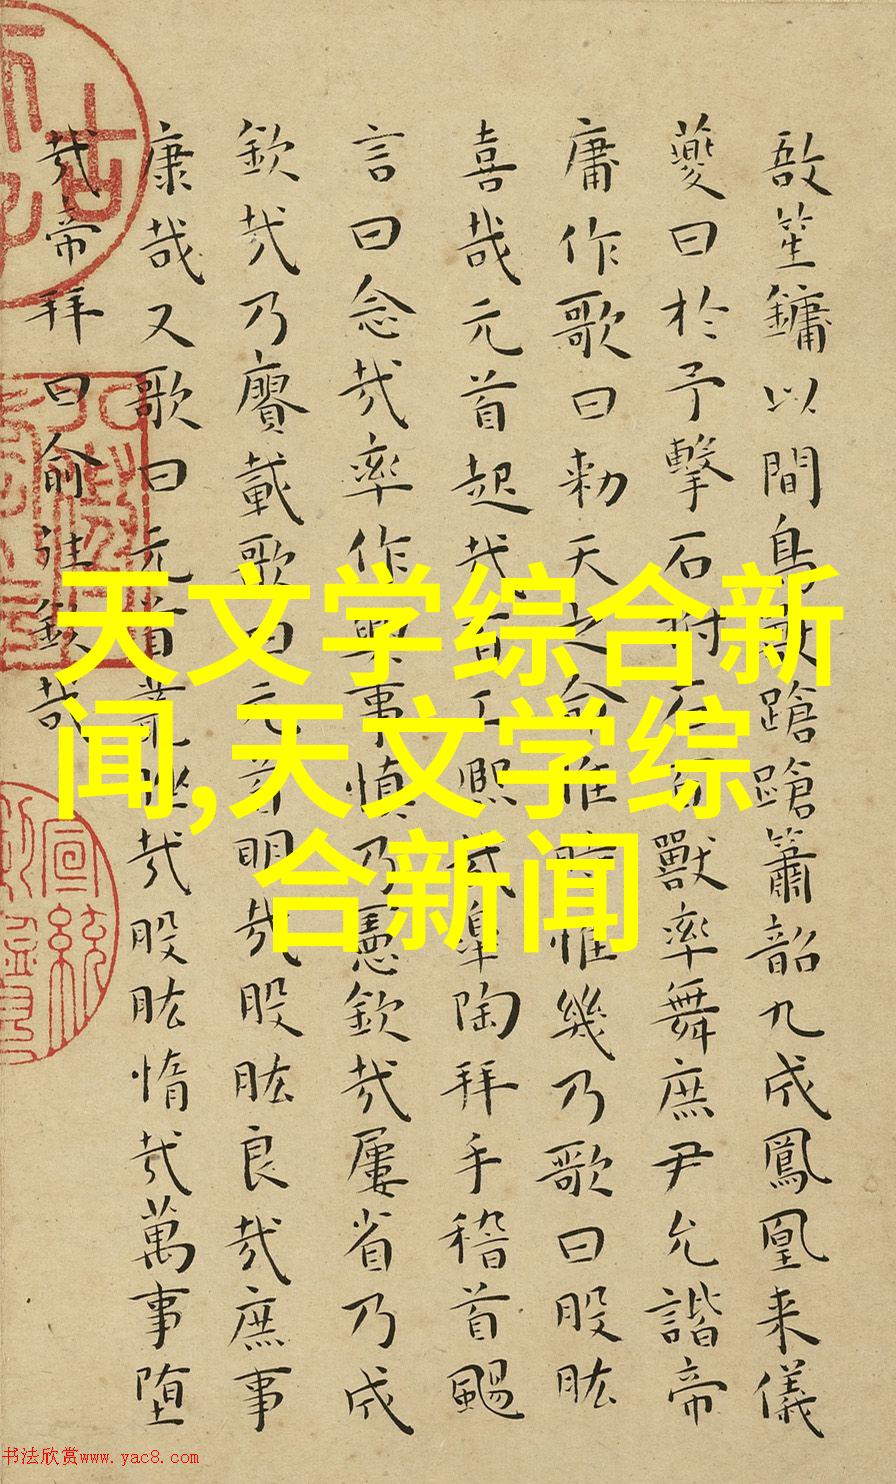 敔笙鏞以間鳥獸蹌蹌簫韶九成鳳凰来儀
夔曰於予擊石拊石百獸率舞庶尹允諧帝
庸作歌曰勑天之命惟時惟幾乃歌曰股肱
喜哉元首起哉百工熙哉皐陶拜手稽首颺
言曰念哉率作興事慎乃憲欽哉屢省乃成
欽哉乃賡載歌曰元首明哉股肱良哉庶事
康哉又歌曰元首叢脞哉股肱惰哉萬事堕
哉帝拜曰俞往欽哉
天文学综合新
闻,天文学综
合新闻
宣統
书法欣赏www.yac8.com